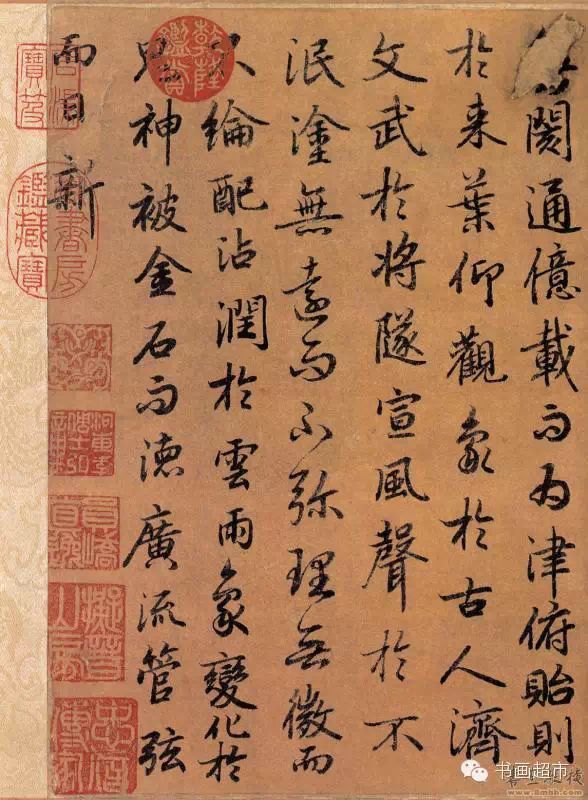 閡通億載而為津俯貽則
於来葉仰觀象於古人濟
文武於将隧宣風聲於不
泯塗無遠而不弥理無微而
不綸配沾潤於雲雨象變化於
鬼神被金石而德廣流管弦
而日新
乾隆鑑賞
鑑藏寶
书画超市